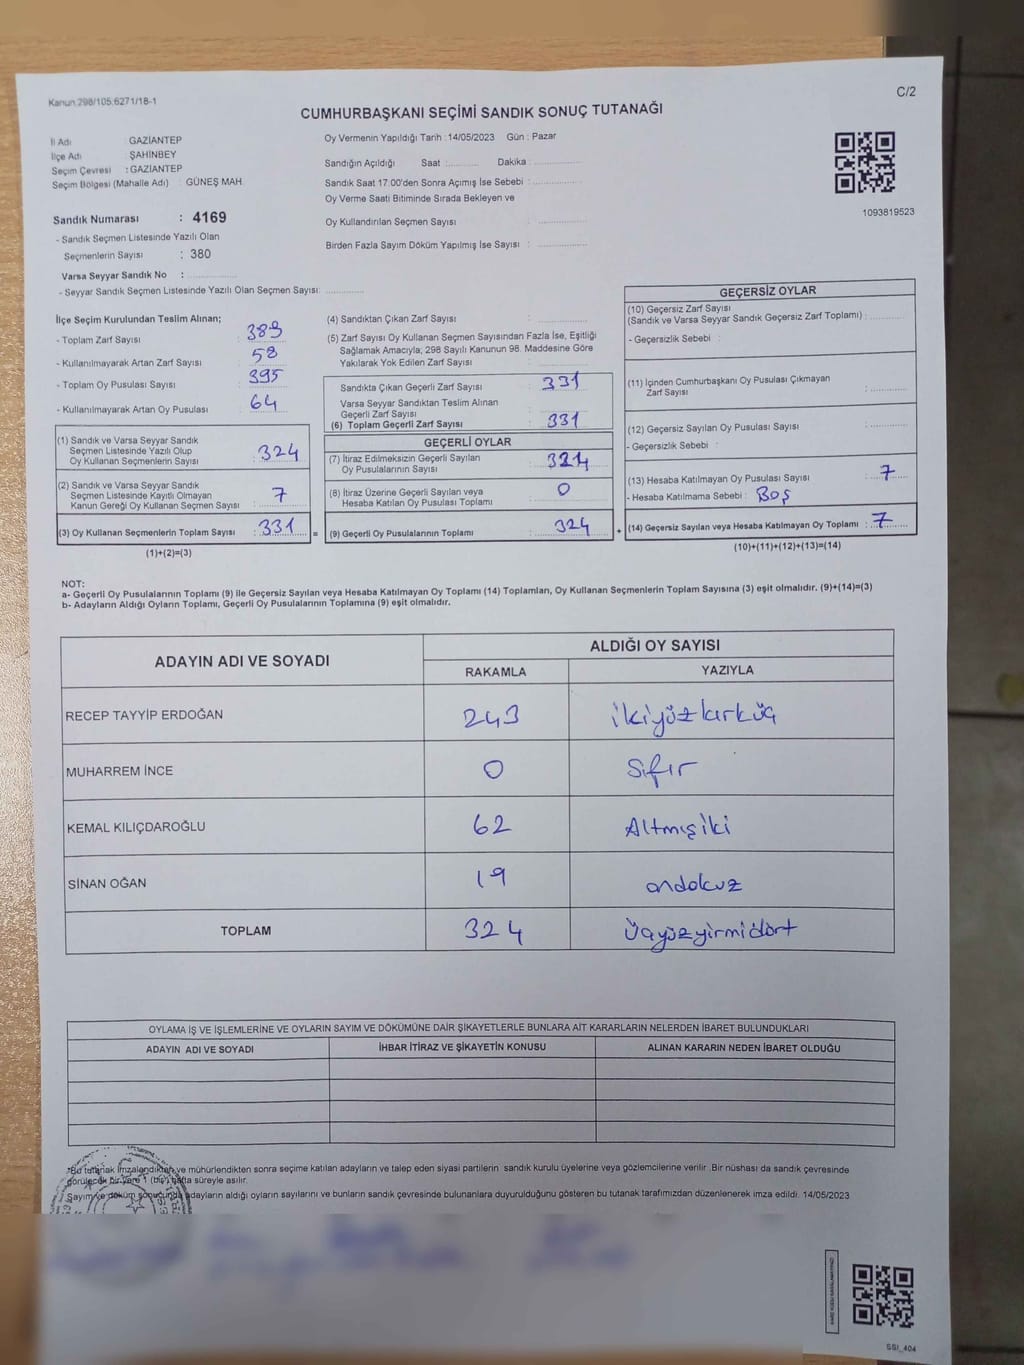 Kanun.298/105.6271/18-1
C/2
CUMHURBAŞKANI SEÇİMİ SANDIK SONUÇ TUTANAĞI
İl Adı : GAZİANTEP
İlçe Adı : ŞAHİNBEY
Seçim Çevresi : GAZİANTEP
Seçim Bölgesi (Mahalle Adı) : GÜNEŞ MAH.
Sandık Numarası : 4169
- Sandık Seçmen Listesinde Yazılı Olan
Seçmenlerin Sayısı : 380
Varsa Seyyar Sandık No :
- Seyyar Sandık Seçmen Listesinde Yazılı Olan Seçmen Sayısı:
Oy Vermenin Yapıldığı Tarih : 14/05/2023 Gün : Pazar
Sandığın Açıldığı Saat : Dakika :
Sandık Saat 17:00'den Sonra Açımış İse Sebebi :
Oy Verme Saati Bitiminde Sırada Bekleyen ve
Oy Kullandırılan Seçmen Sayısı :
Birden Fazla Sayım Döküm Yapılmış İse Sayısı :
1093819523
İlçe Seçim Kurulundan Teslim Alınan;
- Toplam Zarf Sayısı : 389
- Kullanılmayarak Artan Zarf Sayısı : 58
- Toplam Oy Pusulası Sayısı : 395
- Kullanılmayarak Artan Oy Pusulası : 64
(1) Sandık ve Varsa Seyyar Sandık
Seçmen Listesinde Yazılı Olup
Oy Kullanan Seçmenlerin Sayısı : 324
(2) Sandık ve Varsa Seyyar Sandık
Seçmen Listesinde Kayıtlı Olmayan
Kanun Gereği Oy Kullanan Seçmen Sayısı : 7
(3) Oy Kullanan Seçmenlerin Toplam Sayısı : 331 =
(1)+(2)=(3)
(4) Sandıktan Çıkan Zarf Sayısı :
(5) Zarf Sayısı Oy Kullanan Seçmen Sayısından Fazla İse, Eşitliği
Sağlamak Amacıyla; 298 Sayılı Kanunun 98. Maddesine Göre
Yakılarak Yok Edilen Zarf Sayısı :
Sandıkta Çıkan Geçerli Zarf Sayısı : 331
Varsa Seyyar Sandıktan Teslim Alınan
Geçerli Zarf Sayısı :
(6) Toplam Geçerli Zarf Sayısı : 331
GEÇERLİ OYLAR
(7) İtiraz Edilmeksizin Geçerli Sayılan
Oy Pusulalarının Sayısı : 324
(8) İtiraz Üzerine Geçerli Sayılan veya
Hesaba Katılan Oy Pusulası Toplamı : 0
(9) Geçerli Oy Pusulalarının Toplamı : 324 +
GEÇERSİZ OYLAR
(10) Geçersiz Zarf Sayısı
(Sandık ve Varsa Seyyar Sandık Geçersiz Zarf Toplamı) :
- Geçersizlik Sebebi :
(11) İçinden Cumhurbaşkanı Oy Pusulası Çıkmayan
Zarf Sayısı :
(12) Geçersiz Sayılan Oy Pusulası Sayısı :
- Geçersizlik Sebebi :
(13) Hesaba Katılmayan Oy Pusulası Sayısı : 7
- Hesaba Katılmama Sebebi : Boş
(14) Geçersiz Sayılan veya Hesaba Katılmayan Oy Toplamı : 7
(10)+(11)+(12)+(13)=(14)
NOT:
a- Geçerli Oy Pusulalarının Toplamı (9) ile Geçersiz Sayılan veya Hesaba Katılmayan Oy Toplamı (14) Toplamları, Oy Kullanan Seçmenlerin Toplam Sayısına (3) eşit olmalıdır. (9)+(14)=(3)
b- Adayların Aldığı Oyların Toplamı, Geçerli Oy Pusulalarının Toplamına (9) eşit olmalıdır.
ADAYIN ADI VE SOYADI ALDIĞI OY SAYISI
RAKAMLA YAZIYLA
RECEP TAYYİP ERDOĞAN 243 ikiyüzkırküç
MUHARREM İNCE 0 Sıfır
KEMAL KILIÇDAROĞLU 62 Altmışiki
SİNAN OĞAN 19 ondokuz
TOPLAM 324 üçyüzyirmidört
OYLAMA İŞ VE İŞLEMLERİNE VE OYLARIN SAYIM VE DÖKÜMÜNE DAİR ŞİKAYETLERLE BUNLARA AİT KARARLARIN NELERDEN İBARET BULUNDUKLARI
ADAYIN ADI VE SOYADI İHBAR İTİRAZ VE ŞİKAYETİN KONUSU ALINAN KARARIN NEDEN İBARET OLDUĞU
*Bu tutanak imzalandıktan ve mühürlendikten sonra seçime katılan adayların ve talep eden siyasi partilerin sandık kurulu üyelerine veya gözlemcilerine verilir. Bir nüshası da sandık çevresinde
görülecek bir yere 1 (bir) hafta süreyle asılır.
Sayım ve döküm sonucunda adayların aldığı oyların sayılarını ve bunların sandık çevresinde bulunanlara duyurulduğunu gösteren bu tutanak tarafımızdan düzenlenerek imza edildi. 14/05/2023